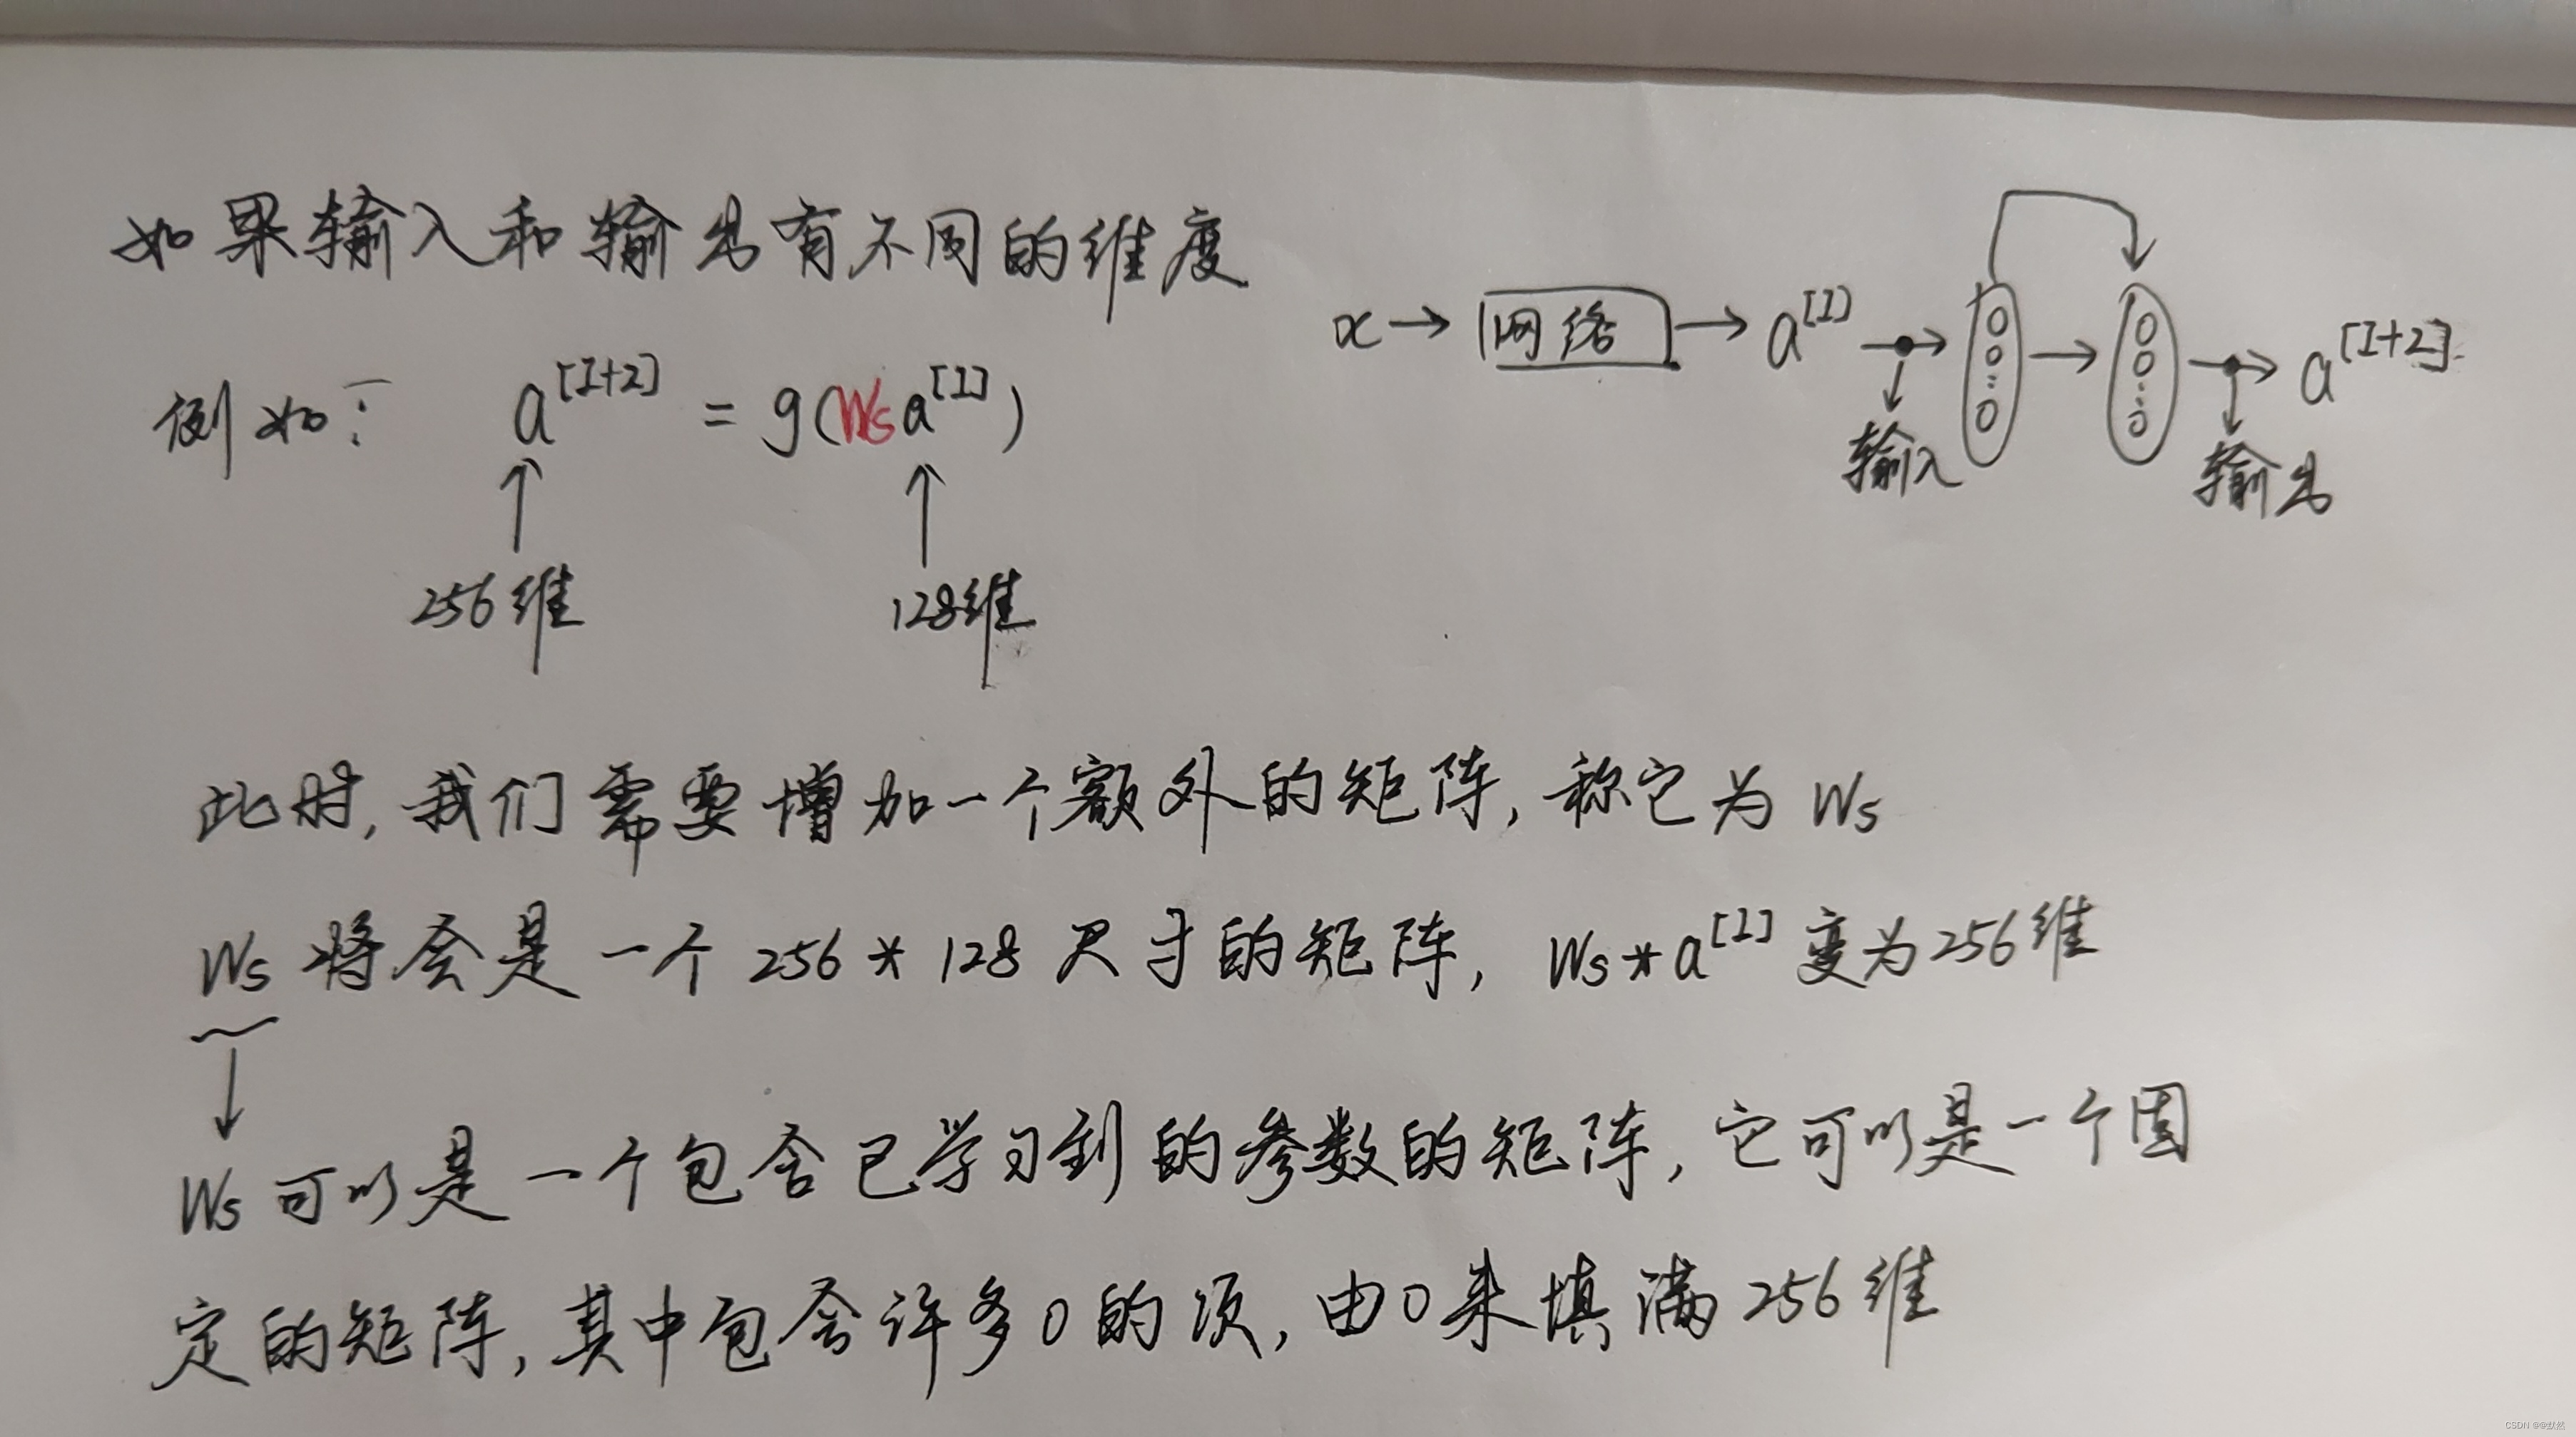 如果输入和输出有不同的维度
x → 网络 → a^[l] → → a^[l+2]
输入 输出
例如: a^[l+2] = g(Ws a^[l])
256维 128维
此时,我们需要增加一个额外的矩阵,称它为 Ws
Ws 将会是一个 256 * 128 尺寸的矩阵, Ws * a^[l] 变为 256维
Ws 可以是一个包含已学习到的参数的矩阵,它可以是一个固
定的矩阵,其中包含许多 0 的项,由 0 来填满 256 维
CSDN @@默然